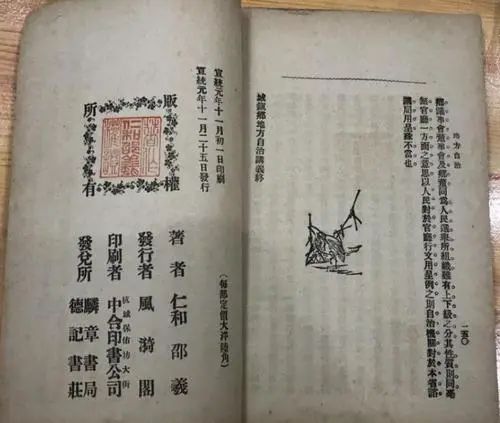 地方自治
一五〇
鄉議事會董事會及鄉董同為人民選舉所組織雖有上下級之分其性質則同毫
無官廳一方面之意思以人民對於官廳行文用呈例之則自治機關對於本省諮
議局用呈殊不當也
城鎮鄉地方自治講義終
宣統元年十一月初一日印刷
宣統元年十一月二十五日發行
(每部定價大洋陸角)
版權
所有
著者 仁和邵羲
發行者 風漪閣
印刷者 杭城保佑坊大街 中合印書公司
發兌所 麟章書局
德記書莊